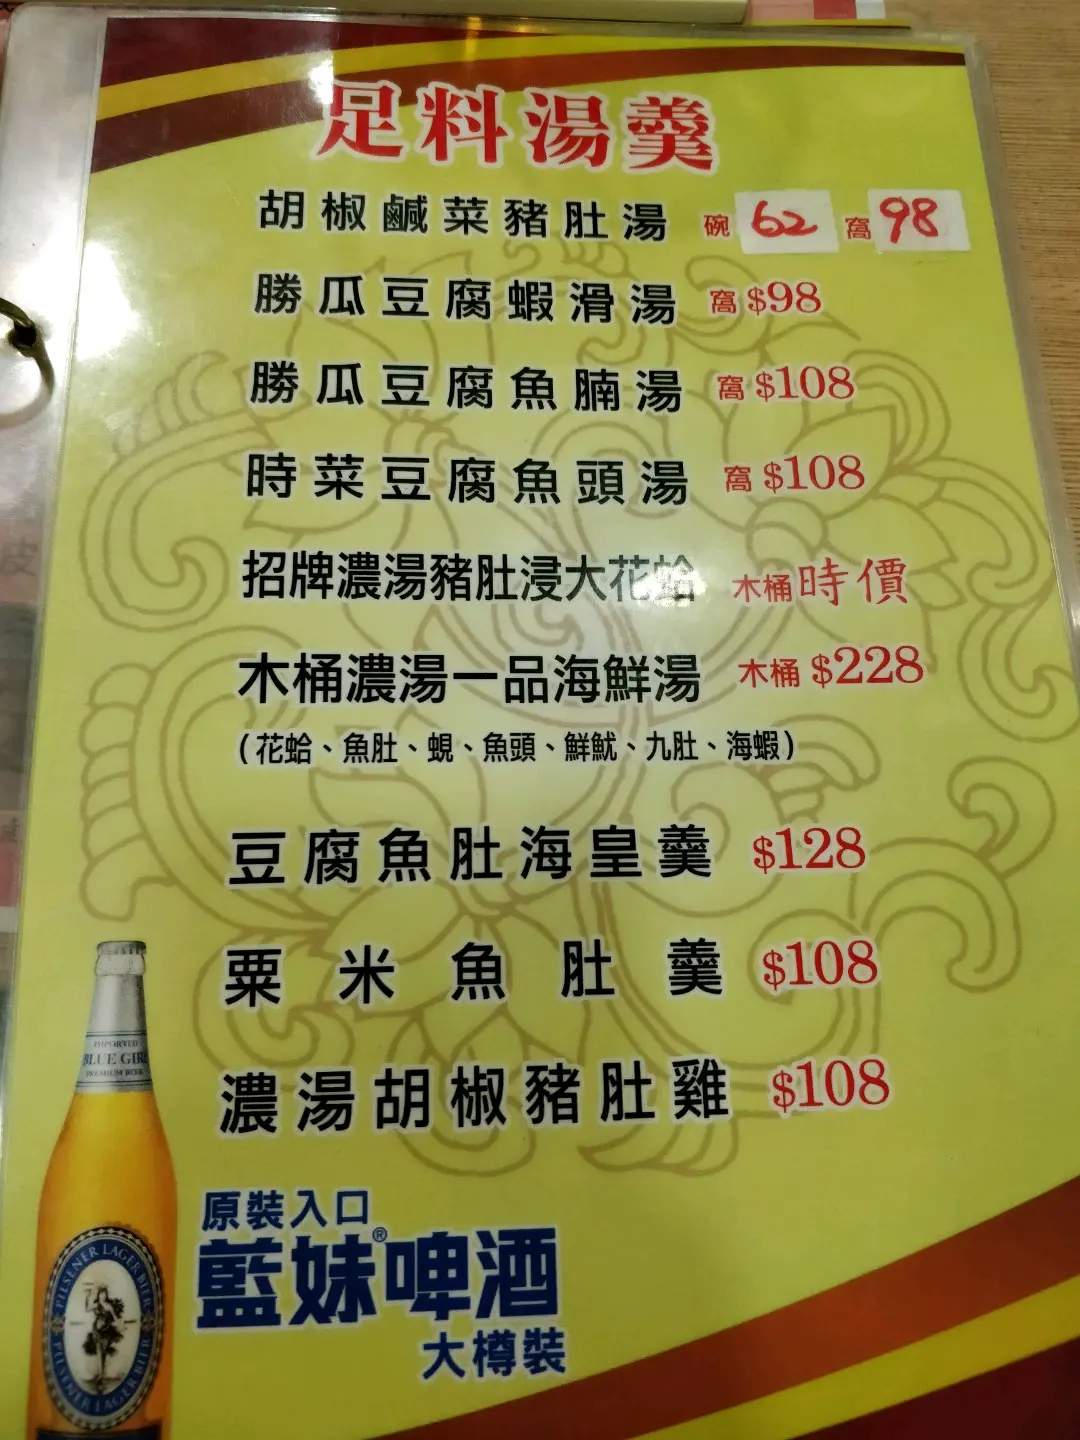 足料湯羹
胡椒鹹菜豬肚湯 碗 62 窩 98
勝瓜豆腐蝦滑湯 窩 $98
勝瓜豆腐魚腩湯 窩 $108
時菜豆腐魚頭湯 窩 $108
招牌濃湯豬肚浸大花蛤 木桶 時價
木桶濃湯一品海鮮湯 木桶 $228
(花蛤、魚肚、蜆、魚頭、鮮魷、九肚、海蝦)
豆腐魚肚海皇羹 $128
粟米魚肚羹 $108
濃湯胡椒豬肚雞 $108
原裝入口
藍妹®啤酒
大樽裝
IMPORTED
BLUE GIRL
PREMIUM BEER
PILSENER LAGER BIER
PILSENER LAGER BIER
皮